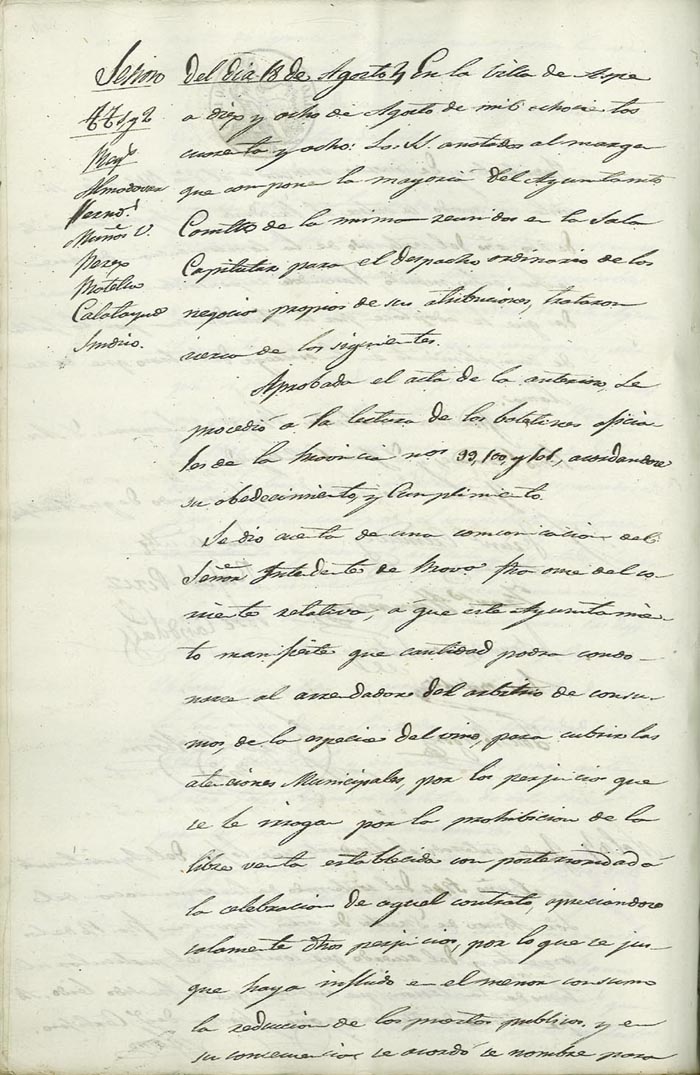 Sesion del dia 18 de Agosto En la Villa de Aspe
a diez y ocho de Agosto de mil ochocientos
cuarenta y ocho: Los SS. anotados al margen
que componen la mayoria del Ayuntamiento
Constl. de la misma reunidos en la Sala
Capitular para el despacho ordinario de los
negocios propios de sus atribuciones, trataron
acerca de los siguientes.
Almodovar
Hernz.
Muñoz V.
Perez
Botella
Calatayud
Sindico.
Aprobada el acta de la anterior, Se
procedió á la lectura de los boletines oficia-
les de la Provincia nos. 99, 100, y 101, acordandose
su obedecimiento, y Cumplimiento.
Se dio cuenta de una comunicacion del
Señor Intendente de Prova. fha once del co-
rriente relativa, a que este Ayuntamien-
to manifieste que cantidad podra condo-
narse al arrendador del arbitrio de consu-
mos, de la especie del vino, para cubrir las
atenciones Municipales, por los perjuicios que
se le irrogan por la prohibicion de la
libre venta establecida con posterioridad á
la celebracion de aquel contrato, apreciandose
solamente dhos perjuicios, por lo que se jus-
que haya influido en el menor consumo
la reduccion de los puestos publicos, y en
su consecuencia se acordó se nombre para